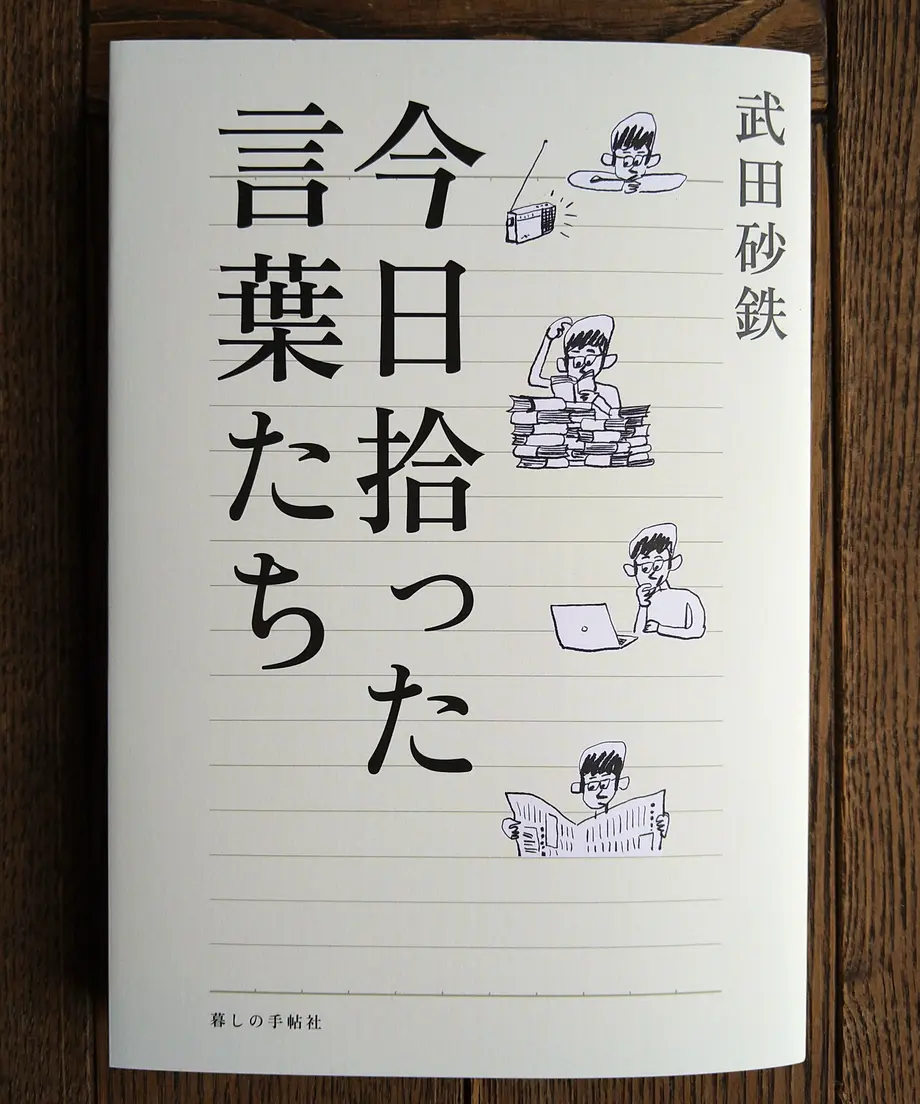 武田砂鉄
今日拾った
言葉たち
暮しの手帖社